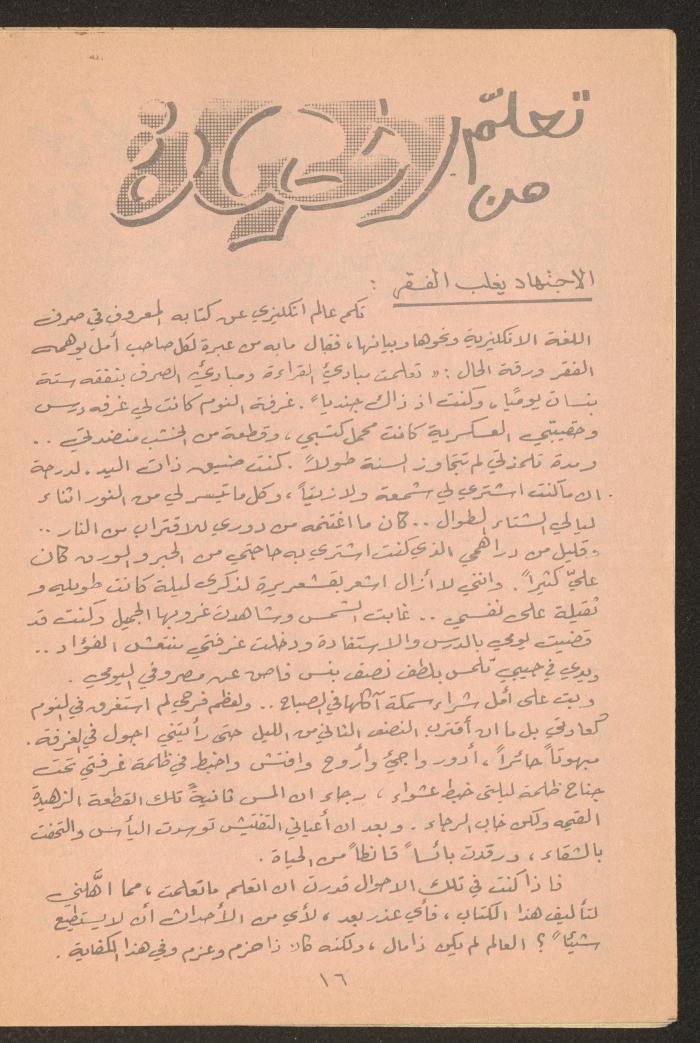 تعلّم
من
الحياة
الاجتهاد يغلب الفقر :
تكلم عالم انكليزي عن كتابه المعروف في صرف
اللغة الانكليزية ونحوها وبيانها، فقال مابه من عبرة لكل صاحب أمل يوهمه
الفقر ورقة الحال : « تعلمت مبادئ القراءة ومبادئ الصرف بنفقه ستة
بنسات يوميًا، وكنت اذ ذاك جنديا ً. غرفة النوم كانت لي غرفه درس
وحقيبتي العسكرية كانت محمل كتبي، وقطعة من الخشب منضدتي ..
ومدة تلمذتي لم تتجاوز السنة طولا ً. كنت ضيق ذات اليد . لدرجة
ان ماكنت اشتري لي شمعة ولا زيتياً، وكل ما تيسر لي من النور اثناء
ليالي الشتاء الطوال .. كان ما اغتنمه من دوري للاقتراب من النار ..
وقليل من دراهمي الذي كنت اشتري به حاجتي من الحبر والورق كان
عليّ كثيراً ". وانني لاأزال اشعر بقشعريرة لذكرى ليلة كانت طويله و
ثقيلة على نفسي .. غابت الشمس وشاهدت غروبها الجميل وكنت قد
قضيت يومي بالدرس والاستفادة ودخلت غرفتي منتعش الفؤاد ..
ويدي في جيبي تلمس بلطف نصف بنس فاض عن مصروفي اليومي .
وبت على أمل شراء سمكة آكلها في الصباح .. ولعظم فرحي لم استغرق في النوم
كعادتي بل ما ان أقترب النصف الثاني من الليل حتى رأيتني اجول في الغرفة .
مبهوتاً حائراً، أدور واجيئ وأروح وافتش واخبط في ظلمة غرفتي تحت
جناح ظلمة ليلتي خبط عشواء، رجاء ان المس ثانيةً تلك القطعة الزهيدة
القيمه ولكن خاب الرجاء . وبعد ان أعياني التفتيش توسدت اليأس والتحفت
بالشقاء، ورقدت بائساً قانطاً من الحياة .
فاذا كنت في تلك الاحوال قدرت ان اتعلم ماتعلمت، مما اهّلني
لتأليف هذا الكتاب، فأي عذر بعد، لأي من الأحداث أن لايستطيع
شيئاً " ؟ العالم لم يكن ذا مال، ولكنه كان ذا حزم وعزم وفي هذا الكفاية .
١٦